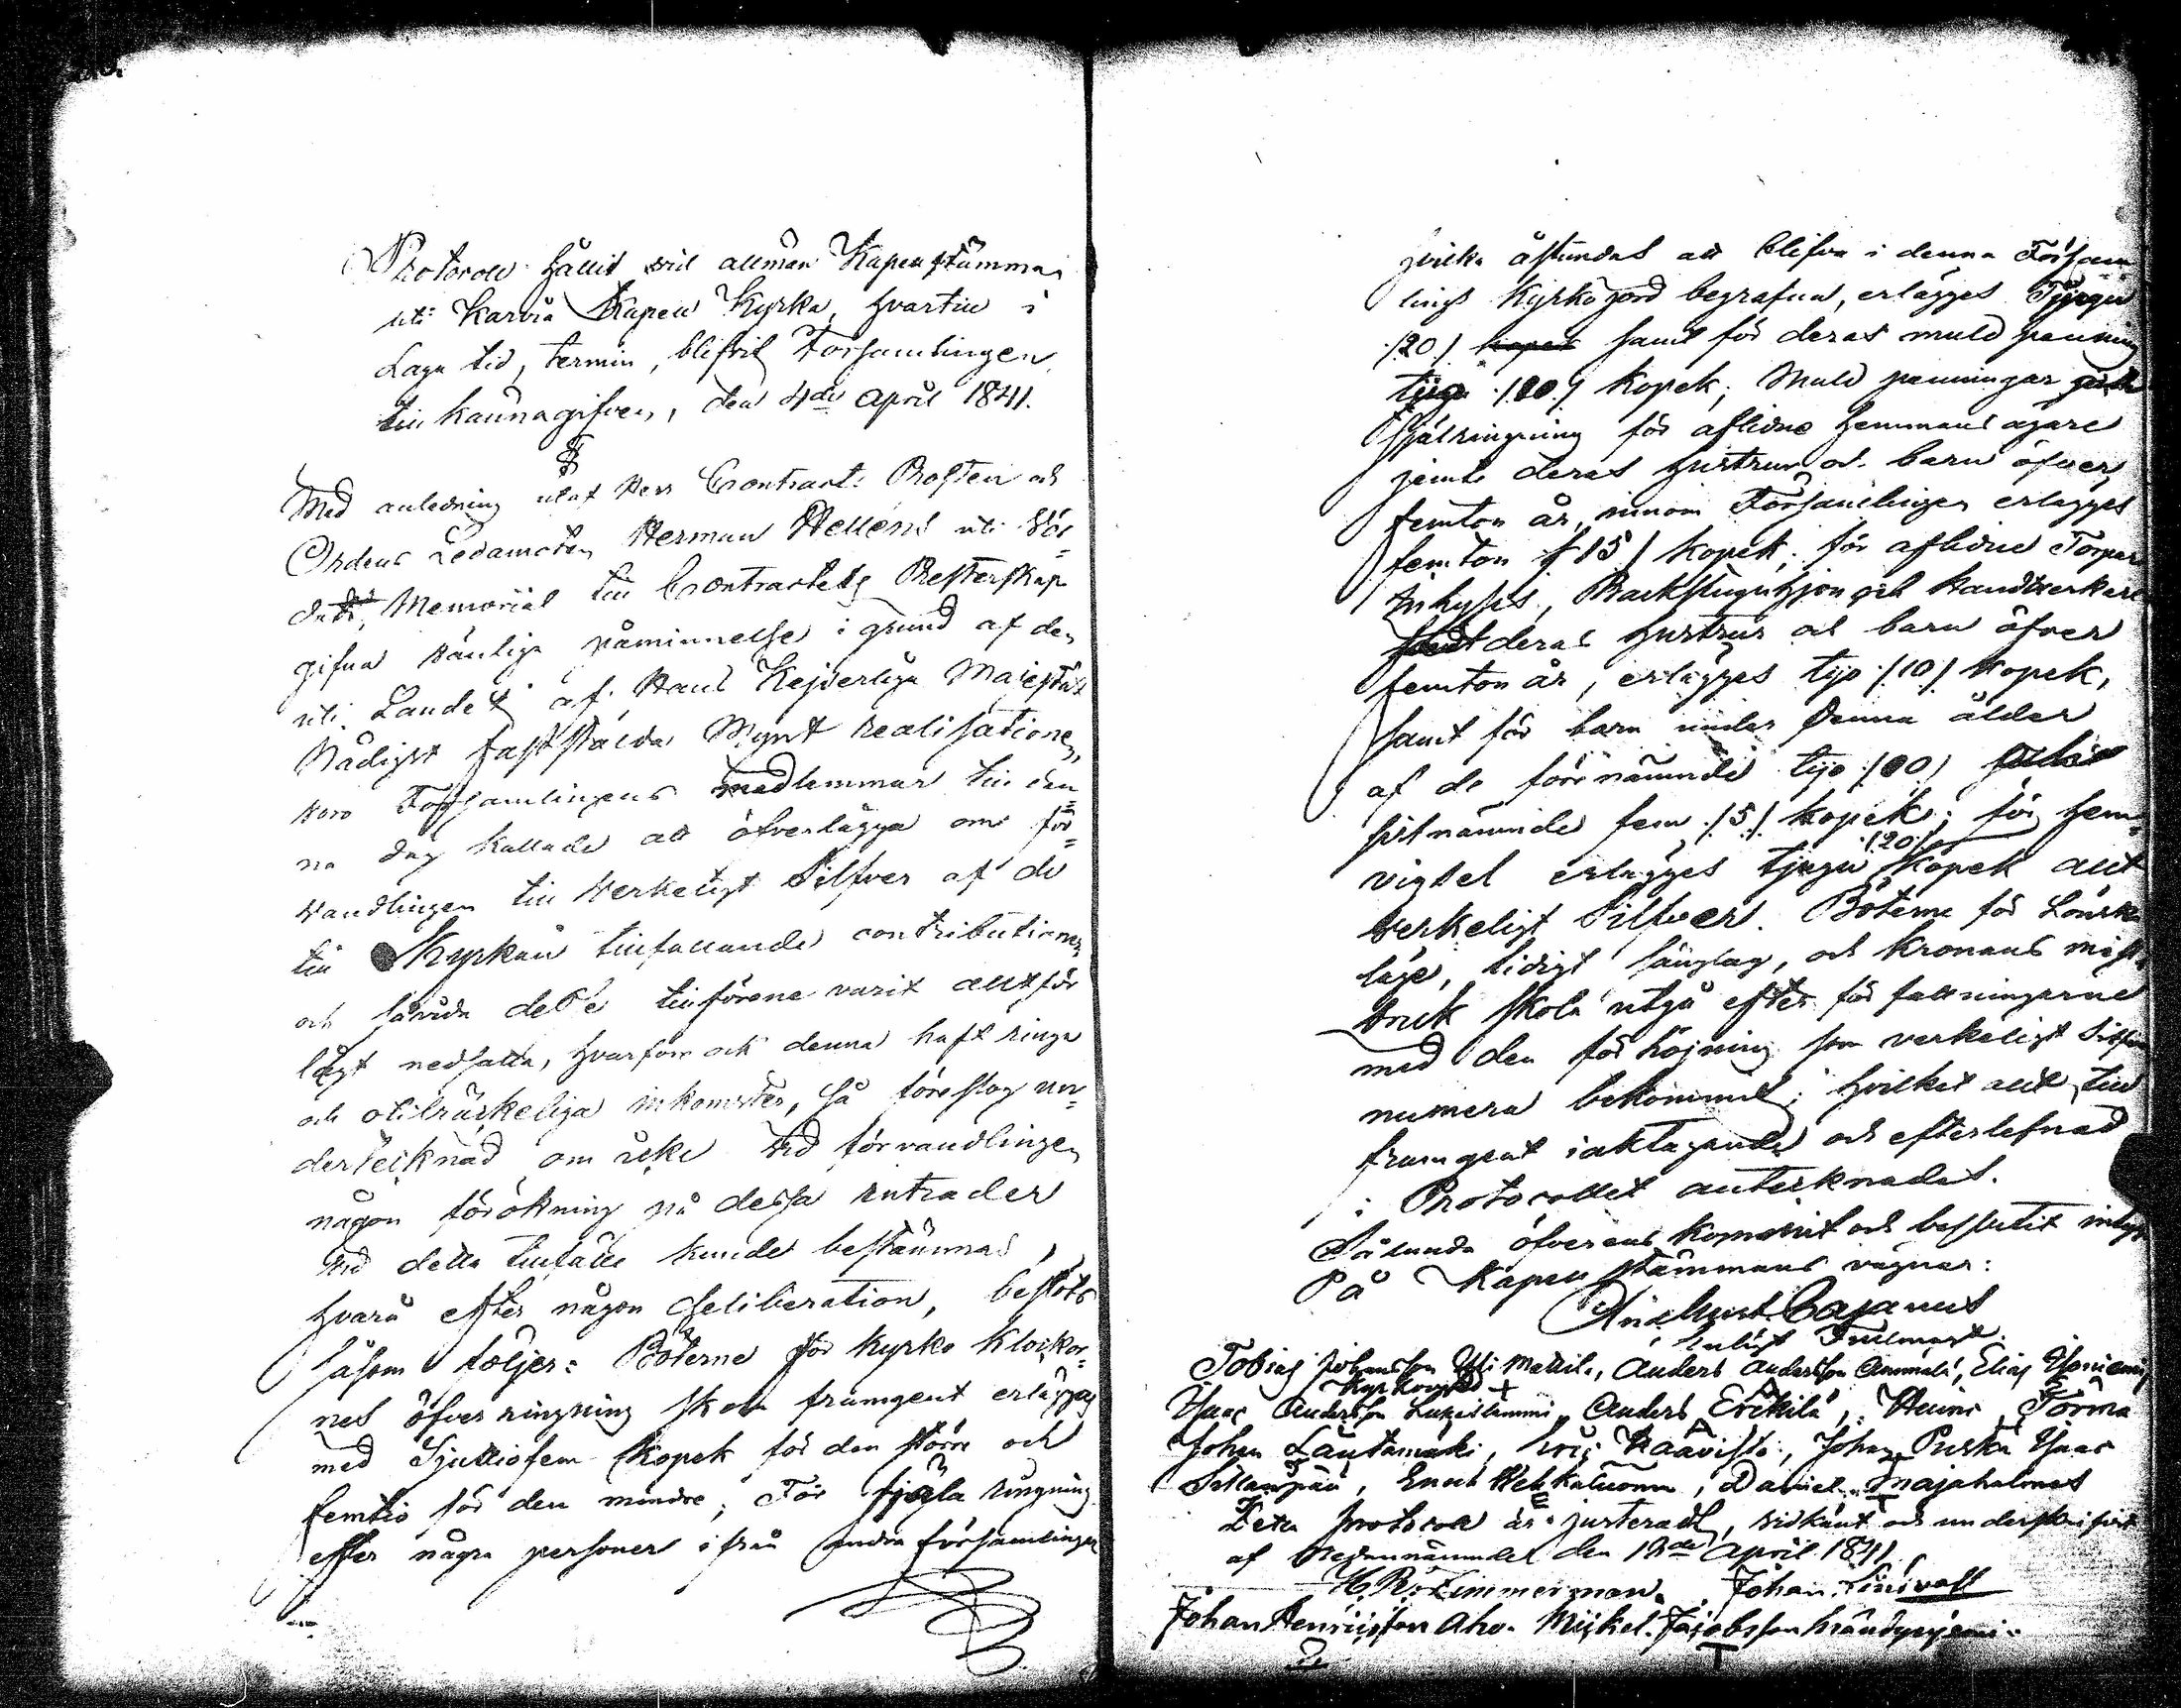 Protocoll hållit vid allmän Kapellstämma
uti Karvia Kapell Kyrka, hvartill i
Laga tid, termin, blifvit Församlingen
till kännagifven, den 4de April 1841.
§
Med anledning utaf Herr Contracts Prosten och
Ordens Ledamoten Herman Helléns uti Vör-
dadt, Memorial till Contractets Presterskap
gifna vänliga påminnelse i grund af den
uti Landet af Hans Kejserliga Majestät
Nådigst fastställda Mynt realisationen,
voro Församlingens medlemmar till den-
na dag kallade att öfverlägga om för-
vandlingen till verkeligt Silfver af de
till Kyrkan tillfallande contributioner
och såvida desse tillförene varit alltför
lågt nedsatta, hvarföre ock denna haft ringa
och otilräckeliga inkomster, så föreslog un-
dertecknad om icke vid förvandlingen
någon förökning på dessa intrader
vid detta tillfälle kunde bestämmas,
hvarå efter någon deliberation, beslöts
såsom följer: Böterne för Kyrko Klockor-
nes öfver ringning skola framgent erläggas
med Sjuttiofem kopek för den större och
femtio för den mindre; För själa ringning
efter några personer ifrån andra församlingar
hvilka åstundas att blifva i denna Försam-
lings Kyrkogård begrafna, erlägges Tjugu
/20/ kopek samt för deras muld penning
tijo /10/ Kopek; Muld penningar och
Själringning för aflidne hemmans ägare
jemte deras hustrur och barn öfver
femton år, innom Församlingen erlägges
femton /15/ kopek; för aflidne Torpare
Inhyses, Backstuguhjon och Handtverkare
samt deras hustrur och barn öfver
femton år, erlägges tijo /10/ kopek,
samt för barn under denna ålder
af de förenämnde tijo /10/
sistnämnde fem /5/ kopek; för hem-
vigsel erlägges tjugu /20/ kopek allt
verkeligt Silfver. Böterne för Lönska
läge, tidigt sänglag, och Kronans miss-
bruk skola utgå efter författningarne
med den förhöjning som verkeligt Silfver
numera bekommit; hvilket allt till
framgent iakttagande och efterlefnad
i Protocollet antecknades.
Sålunda öfverens kommit och beslutit intyga
På Kapell stämmans vägnar:
Cajanus
enligt Fullmagt.
Tobias Johansson Mattila, Anders Andersson Ämmälä, Elias
Kyrkovärd
Isaac Andersson Lukeslammi, Anders Erkilä, Henric Törmä
Johan Lautamäki, Eric Haavisto, Johan Puska Isaac
Enoch Wehkaluoma, Daniel Majahalmes
Detta protocoll är justeradt, vidkänt och underskrifvit
af nedannämnde den April 1841.
H. R. Zimmerman. Johan
Johan Henricsson Aho. Mickel Jacobsson